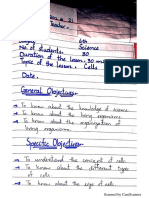 # 21
Teacher.
6th
No of students. Science
Duration of the Lesson. 30
Topic of the Lesson. Cells
Date.
General Objectives
To know about the knowledge of science
To know about the living organisms
To know about the organization of
living organisms.
Specific Objectives
To understand the concept of cells
To know about the different types
of cells
To know about the size of cells.
Scanned by CamScanner